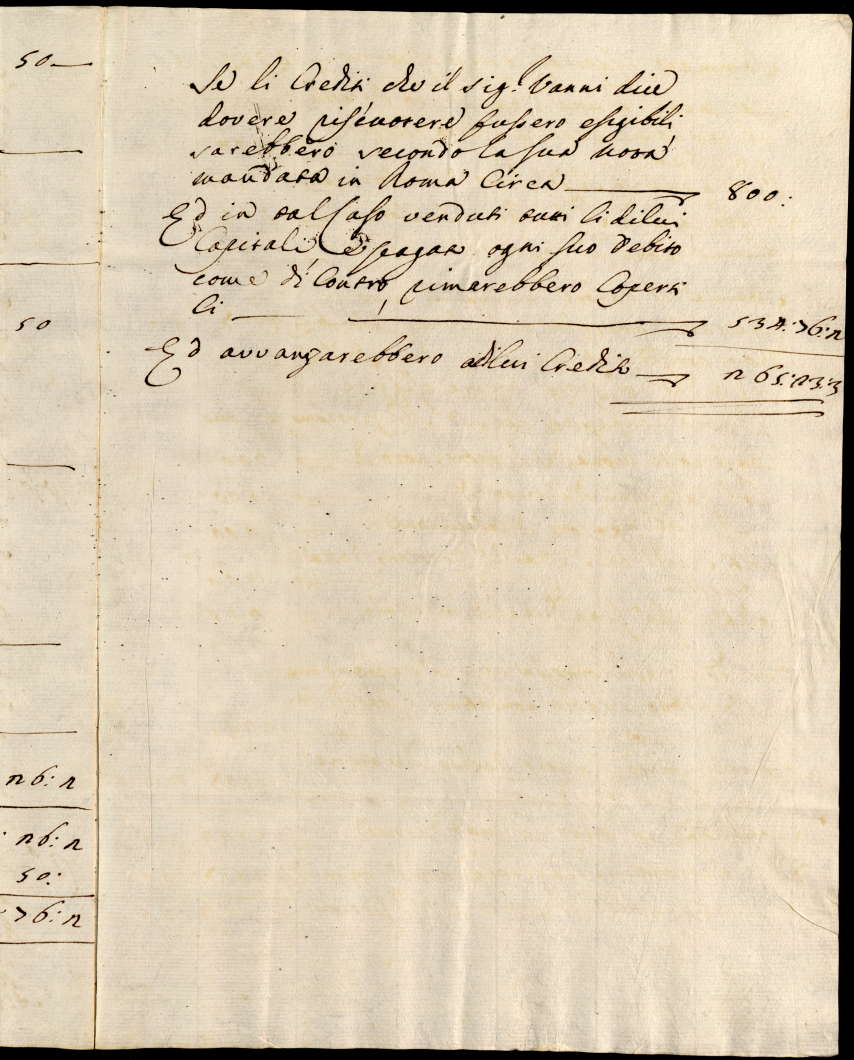 50—
Se li Crediti che il sig.r Vanni dice
dovere riscuotere fussero esigibili
sarebbero secondo la sua nota
mandata in Roma Circa — 800:
Ed in tal Caso venduti tutti li di lui
Capitali e pagati ogni suo Debito
come di Contro, rimarebbero Coperti
li — 534:76:2
50
Ed avvanzarebbero a di lui Credito — 265:23:3
26:2
26:2
50:
76:2